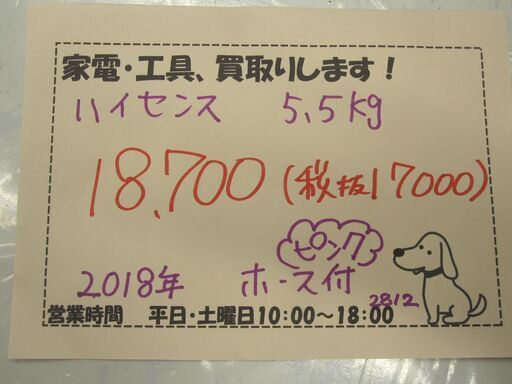 家電・工具、買取りします！
ハイセンス 5.5kg
18,700 (税抜17000)
ピンク
2018年 ホース付
2812
営業時間 平日・土曜日10:00～18:00